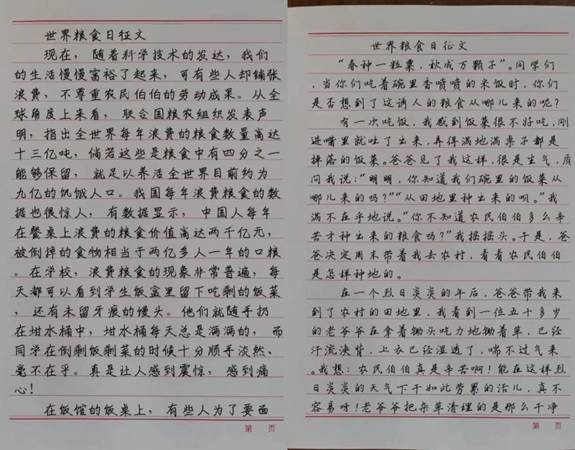 世界粮食日征文
现在，随着科学技术的发达，我们
的生活慢慢富裕了起来，可有些人却铺张
浪费，不尊重农民伯伯的劳动成果。从全
球角度上来看，联合国粮农组织发表声
明，指出全世界每年浪费的粮食数量高达
十三亿吨，倘若这些是粮食中有四分之一
能够保留，就足以养活全世界目前约为
九亿的饥饿人口。我国每年浪费粮食的数
据也很惊人，有数据显示，中国人每年
在餐桌上浪费的粮食价值高达两千亿元，
被倒掉的食物相当于两亿多人一年的口粮
。在学校，浪费粮食的现象非常普遍，每
天都可以看到学生饭盒里留下吃剩的饭菜
，还有未留牙痕的馒头。他们就随手扔
在泔水桶中，泔水桶每天总是满满的，而
同学在倒剩饭剩菜的时候十分顺手淡然、
毫不在乎。真是让人感到震惊，感到痛
心！
在饭馆的饭桌上，有些人为了要面
第 页
世界粮食日征文
“春种一粒粟，秋成万颗子”。同学们
，当你们吃着碗里香喷喷的米饭时，你们
是否想到了这诱人的粮食从哪儿来的呢？
有一次吃饭，我感到饭菜很不好吃，刚
进嘴里就吐了出来，弄得满地满桌子都是
掉落的饭菜。爸爸见了我这样，很是生气，质
问我说：“明明，你知道我们碗里的饭菜从
哪儿来的吗？”“从田地里种出来的呗。”我
满不在乎地说。“你不知道农民伯伯多么辛
苦才种出来的粮食吗？”我摇摇头。于是，爸
爸决定周末带着我去农村，看看农民伯伯
是怎样种地的。
在一个烈日炎炎的午后，爸爸带我来
到了农村的田地里，我看到一位五十多岁
的老爷爷在拿着锄头吃力地锄着草，已经
汗流浃背，上衣已经湿透了，喘不过气来
。我想：农民伯伯真是辛苦啊！能在这样烈
日炎炎的天气下干如此劳累的活儿，真不
容易呀！老爷爷把杂草清理的是那么干净
第 页